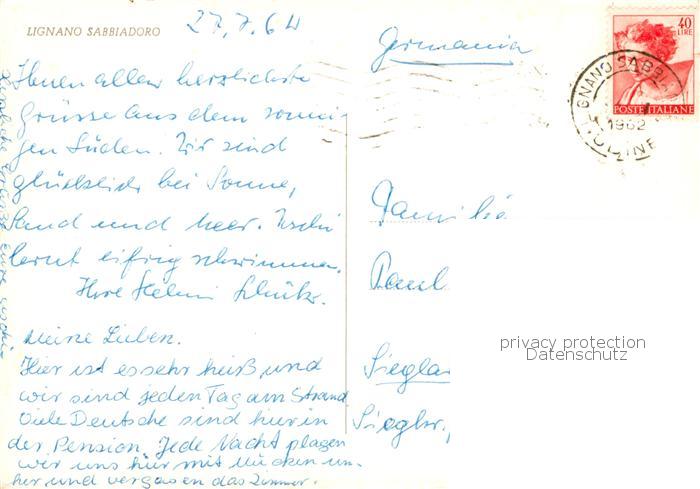 LIGNANO SABBIADORO
27.7.64
Germania
40
LIRE
POSTE ITALIANE
LIGNANO SABB
1962
UDINE
Ihnen allen herzlichste
Grüsse aus dem sonni-
gen Süden. Wir sind
glücklich bei Sonne,
Sand und Meer. Uschi
lernt eifrig schwimmen.
Ihre Helmi Schütz.
Meine Lieben.
Hier ist es sehr heiß und
wir sind jeden Tag am Strand
Viele Deutsche sind hier in
der Pension. Jede Nacht plagen
wir uns hier mit Mücken um-
her und vergasen das Zimmer.
Familie
Paul
Sieglar
Sieglar,
privacy protection
Datenschutz